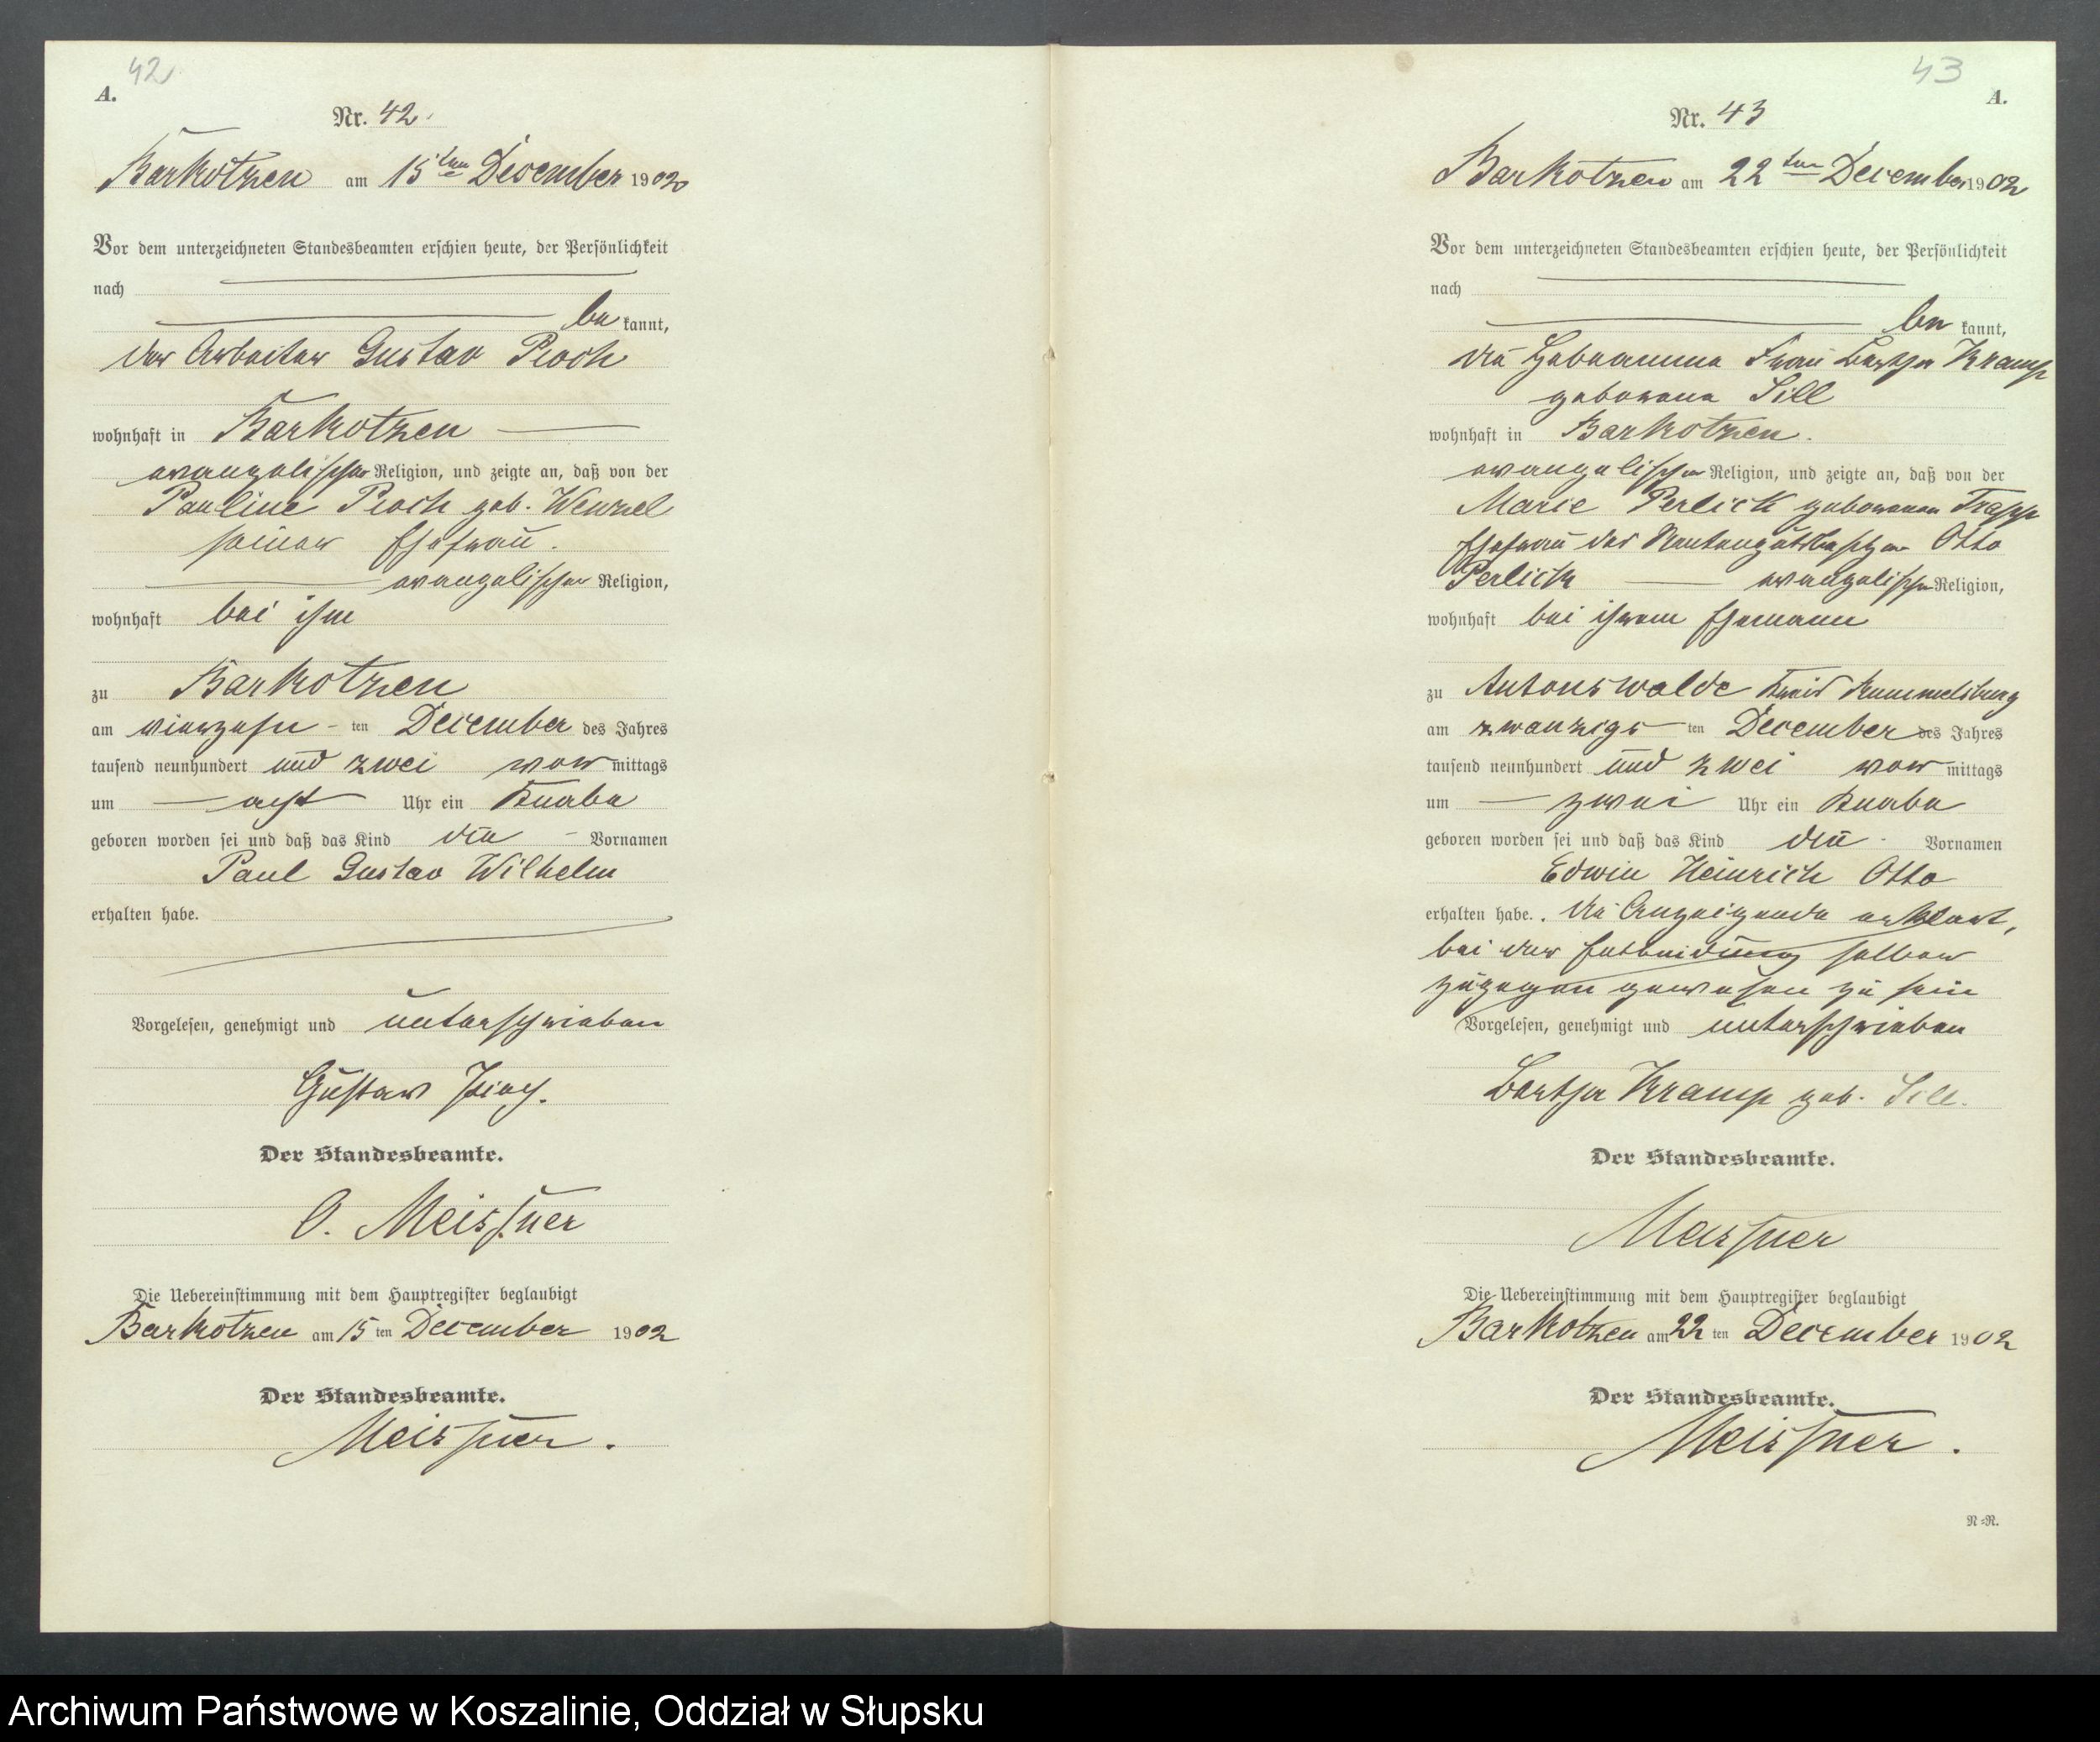 42
A.
Nr. 42.
Barkotzen am 15ten December 1902
Vor dem unterzeichneten Standesbeamten erschien heute, der Persönlichkeit
nach
be kannt,
der Arbeiter Gustav Pioch
wohnhaft in Barkotzen
evangelischer Religion, und zeigte an, daß von der
Pauline Pioch geb. Wenzel
seiner Ehefrau.
evangelischer Religion,
wohnhaft bei ihm
zu Barkotzen
am vierzehn - ten December des Jahres
tausend neunhundert und zwei vor mittags
um acht Uhr ein Knabe
geboren worden sei und daß das Kind die - Vornamen
Paul Gustav Wilhelm
erhalten habe.
Vorgelesen, genehmigt und unterschrieben
Gustav Pioch.
Der Standesbeamte.
O. Meissner
Die Uebereinstimmung mit dem Hauptregister beglaubigt
Barkotzen am 15 ten December 1902
Der Standesbeamte.
Meissner.
43
A.
Nr. 43
Barkotzen am 22ten December 1902
Vor dem unterzeichneten Standesbeamten erschien heute, der Persönlichkeit
nach
be kannt,
die Hebeamme Frau Bertha Kramp
geborene Sill
wohnhaft in Barkotzen.
evangelischer Religion, und zeigte an, daß von der
Marie Perlick geborenen Trapp
Ehefrau des Rentengutsbesitzer Otto
Perlick evangelischer Religion,
wohnhaft bei ihrem Ehemann
zu Antonswalde Kreis Rummelsburg
am zwanzigs ten December des Jahres
tausend neunhundert und zwei vor mittags
um zwei Uhr ein Knabe
geboren worden sei und daß das Kind die - Vornamen
Edwin Heinrich Otto
erhalten habe. Die Anzeigende erklärt,
bei der Entbindung selber
zugegen gewesen zu sein
Vorgelesen, genehmigt und unterschrieben
Bertha Kramp geb. Sill.
Der Standesbeamte.
Meissner
Die Uebereinstimmung mit dem Hauptregister beglaubigt
Barkotzen am 22 ten December 1902
Der Standesbeamte.
Meissner.
N=R.
Archiwum Państwowe w Koszalinie, Oddział w Słupsku